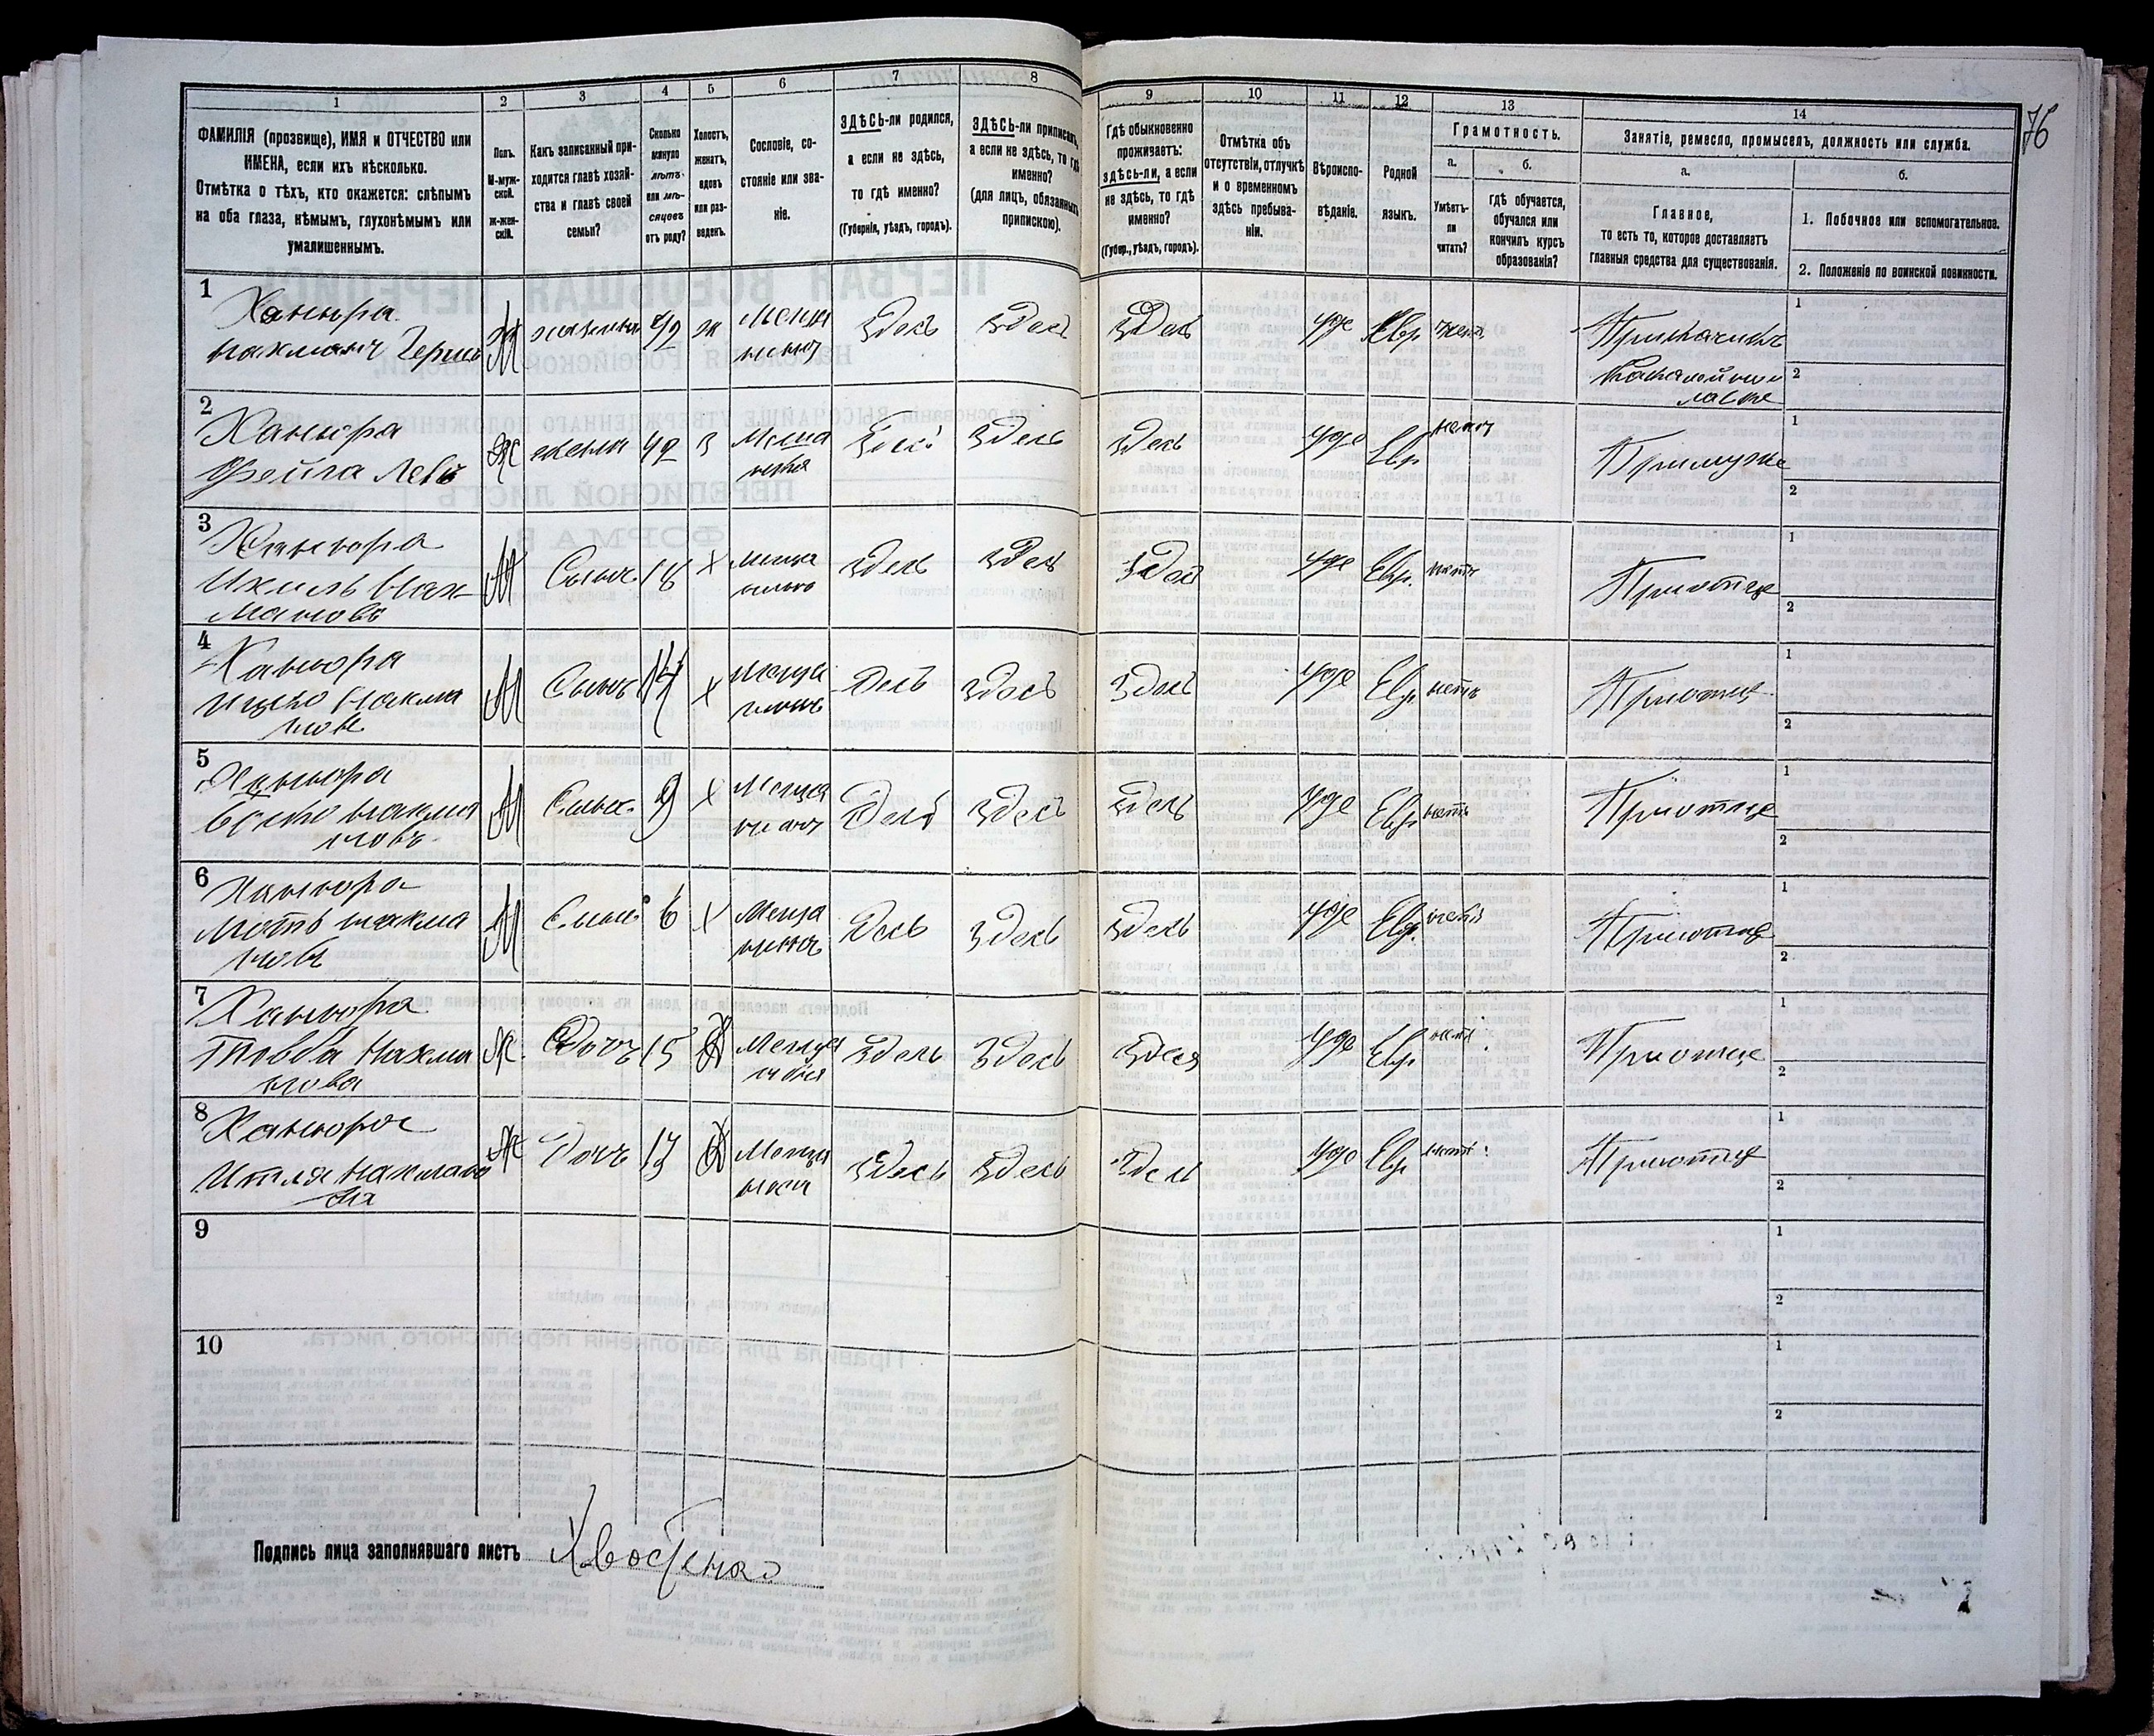 76
1 2 3 4 5 6 7 8 9 10 11 12 13 14
ФАМИЛІЯ (прозвище), ИМЯ и ОТЧЕСТВО или
ИМЕНА, если ихъ нѣсколько.
Отмѣтка о тѣхъ, кто окажется: слѣпымъ
на оба глаза, нѣмымъ, глухонѣмымъ или
умалишеннымъ.
Полъ.
М-муж-
ской.
Ж-жен-
скій.
Какъ записанный при-
ходится главѣ хозяй-
ства и главѣ своей
семьи?
Сколько
минуло
лѣтъ
или мѣ-
сяцевъ
отъ роду?
Холостъ,
женатъ,
вдовъ
или раз-
веденъ.
Сословіе, со-
стояніе или зва-
ніе.
ЗДѢСЬ-ли родился,
а если не здѣсь,
то гдѣ именно?
(Губернія, уѣздъ, городъ).
ЗДѢСЬ-ли приписанъ,
а если не здѣсь, то гдѣ
именно?
(для лицъ, обязанныхъ
припискою).
Гдѣ обыкновенно
проживаетъ:
здѣсь-ли, а если
не здѣсь, то гдѣ
именно?
(Губер., уѣздъ, городъ).
Отмѣтка объ
отсутствіи, отлучкѣ
и о временномъ
здѣсь пребыва-
ніи.
Вѣроиспо-
вѣданіе.
Родной
языкъ.
Грамотность.
а. б.
Умѣетъ-
ли
читать?
гдѣ обучается,
обучался или
кончилъ курсъ
образованія?
Занятіе, ремесло, промыселъ, должность или служба.
а. б.
Главное,
то есть то, которое доставляетъ
главныя средства для существованія.
1. Побочное или вспомогательное.
2. Положеніе по воинской повинности.
1 Ханьора М 49 ж Меща здесь здесь здесь Іуде Евр нетъ 1
2
2 Ханьора Ж жена 42 з Меща здесь здесь здесь Іуде Евр нетъ Примуже 1
Фейга Лев 2
3 Ханьора М Сынъ 18 х Меща здесь здесь здесь Іуде Евр. нетъ Приотце 1
Ихиль Нах-
мановъ 2
4 Ханьора М Сынъ 14 х Меща десь здесь здесь Іуде Евр. нетъ Приотце 1
Ицко Нахма
новъ 2
5 Ханьора М Сынъ 9 х Меща десь здесь здесь Іуде Евр нетъ Приотце 1
нахма
новъ 2
6 Ханьора М Сынъ 6 х Меща десь здесь здесь Іуде Евр. нетъ Приотце 1
нахма нинъ
новъ 2
7 Ханьора Ж. Дочъ 15 Меща здесь здесь здеся Іуде Евр нетъ Приотце 1
Товба Нахма
нова 2
8 Ханьора Ж Дочъ 13 Меща здесь здесь здесь Іуде Евр нетъ Приотце 1
Итля Нахмано
ва 2
9 1
2
10 1
2
Подпись лица заполнявшаго листъ